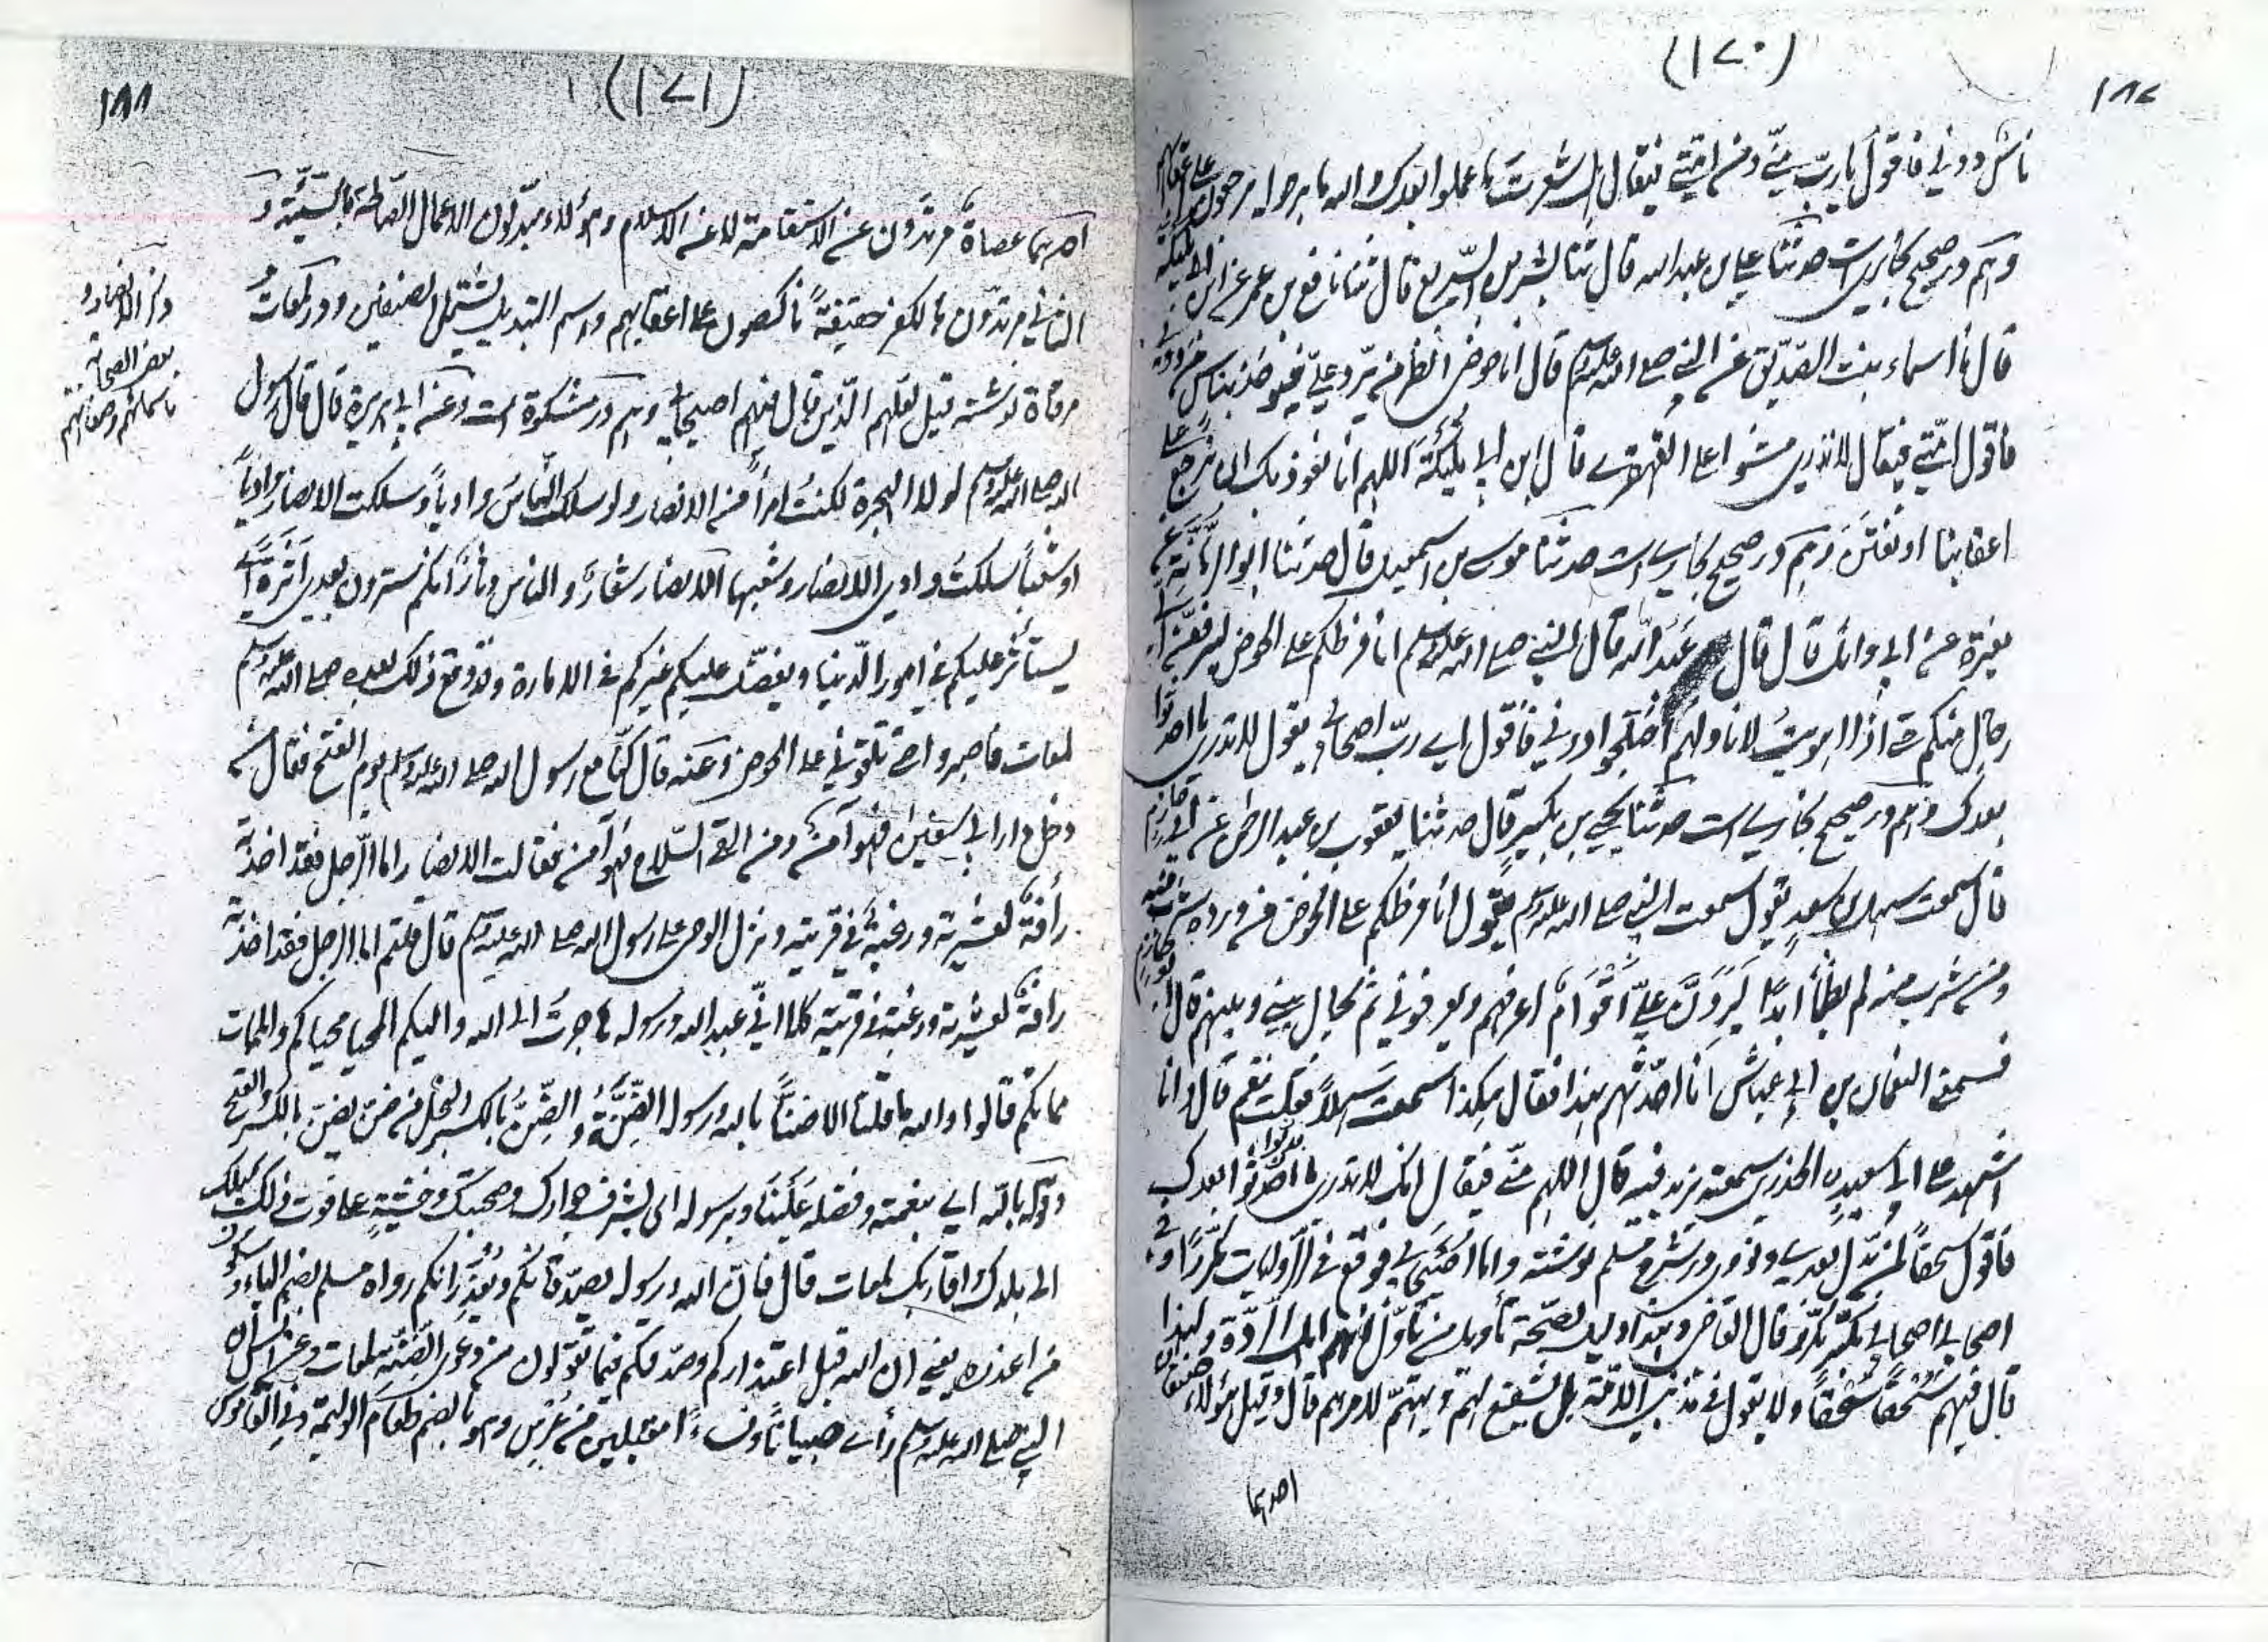 (۱۷۰)
۱۸۷
ناس دوني فاقول يا رب مني ومن امتي فيقال هل شعرت ما عملوا بعدك والله ما برحوا يرجعون على اعقابهم
وهم در صحيح بخاري است حدثنا علي بن عبد الله قال ثنا بشر بن السري قال ثنا نافع بن عمر عن ابن ابي مليكة
قال قال اسماء بنت الصديق عن النبي صلى الله عليه وسلم قال انا على حوضي انتظر من يرد علي فيوخذ بناس من دوني
فاقول امتي فيقال لا تدري مشوا على القهقرى قال ابن ابي مليكة اللهم انا نعوذ بك ان نرجع على
اعقابنا او نفتن وهم در صحيح بخاري است حدثنا موسى بن اسمعيل قال حدثنا ابو عوانة عن
مغيرة عن ابي وائل قال قال عبد الله قال النبي صلى الله عليه وسلم انا فرطكم على الحوض ليرفعن الي
رجال منكم حتى اذا اهويت لاناولهم اختلجوا دوني فاقول اي رب اصحابي يقول لا تدري ما احدثوا
بعدك وهم در صحيح بخاري است حدثنا يحيى بن بكير قال حدثنا يعقوب بن عبد الرحمن عن ابي حازم
قال سمعت سهل بن سعد يقول سمعت النبي صلى الله عليه وسلم يقول انا فرطكم على الحوض من ورده شرب منه
ومن شرب منه لم يظمأ ابدا ليردن علي اقوام اعرفهم ويعرفوني ثم يحال بيني وبينهم قال ابو حازم
فسمع النعمان بن ابي عياش انا احدثهم هذا فقال هكذا سمعت سهلا فقلت نعم قال وانا
اشهد على ابي سعيد الخدري سمعته يزيد فيه قال انهم مني فيقال انك لا تدري ما بدلوا بعدك
فاقول سحقا لمن بدل بعدي ونووي در شرح مسلم نوشته واما اصيحابي فوقع في الروايات مكررا وفي
اصحابي اصحابي مكبر مكرر قال القاضي وهذا دليل لصحة تأويل من تأول انهم اهل الردة ولهذا
قال فيهم سحقا سحقا ولا يقول في مذنبي الامة بل يشفع لهم ويهتم لامرهم قال وقيل هؤلاء صنفان
احدهما
(۱۷۱)
۱۸۸
احدهما عصاة مرتدون عن الاستقامة لا عن الاسلام وهؤلاء مبدلون الاعمال الصالحة بالسيئة و
الثاني مرتدون بالكفر حقيقة ناكصون على اعقابهم واسم التبديل يشتمل الصنفين ودر لمعات
مرقاة نوشته قيل لعلهم الذين قال فيهم اصيحابي وهم در مشكوة است وعن ابي هريرة قال قال رسول
الله صلى الله عليه وسلم لولا الهجرة لكنت امرأ من الانصار ولو سلك الناس واديا وسلكت الانصار واديا
او شعبا سلكت وادي الانصار وشعبها الانصار شعار والناس دثار انكم سترون بعدي اثرة اي
يستأثر عليكم في امور الدنيا ويفضل عليكم غيركم في الامارة وقد وقع ذلك بعده صلى الله عليه وسلم
لمعات فاصبروا حتى تلقوني على الحوض وعنه قال كنا مع رسول الله صلى الله عليه وسلم يوم الفتح فقال من
دخل دار ابي سفين فهو آمن ومن القى السلاح فهو آمن فقالت الانصار اما الرجل فقد اخذته
رأفة بعشيرته ورغبة في قريته ونزل الوحي على رسول الله صلى الله عليه وسلم قال قلتم اما الرجل فقد اخذته
رافة بعشيرته ورغبة في قريته كلا اني عبد الله ورسوله هاجرت الى الله واليكم المحيا محياكم والممات
مماتكم قالوا والله ما قلنا الا ضنا بالله ورسوله الضنة والضن بالكسر البخل من ضن يضن بالكسر والفتح
وقوله بالله اي بنعمته وفضله علينا وبرسوله اي بشرف جوارك وصحبتك وخشية على فوت ذلك بميلك
الى بلدك واقاربك لمعات قال فان الله ورسوله يصدقانكم ويعذرانكم رواه مسلم بضم الياء وسكون
من اعذره يعني ان الله قبل اعتذاركم وصدقكم فيما تقولون من دعوى الضنة لمعات وعن انس ان
النبي صلى الله عليه وسلم رأى صبيانا ونساء مقبلين من عرس وهو بالضم طعام الوليمة وفي القاموس
ذكر الانصار و
بعض الصحابة
باسمائهم وصفاتهم